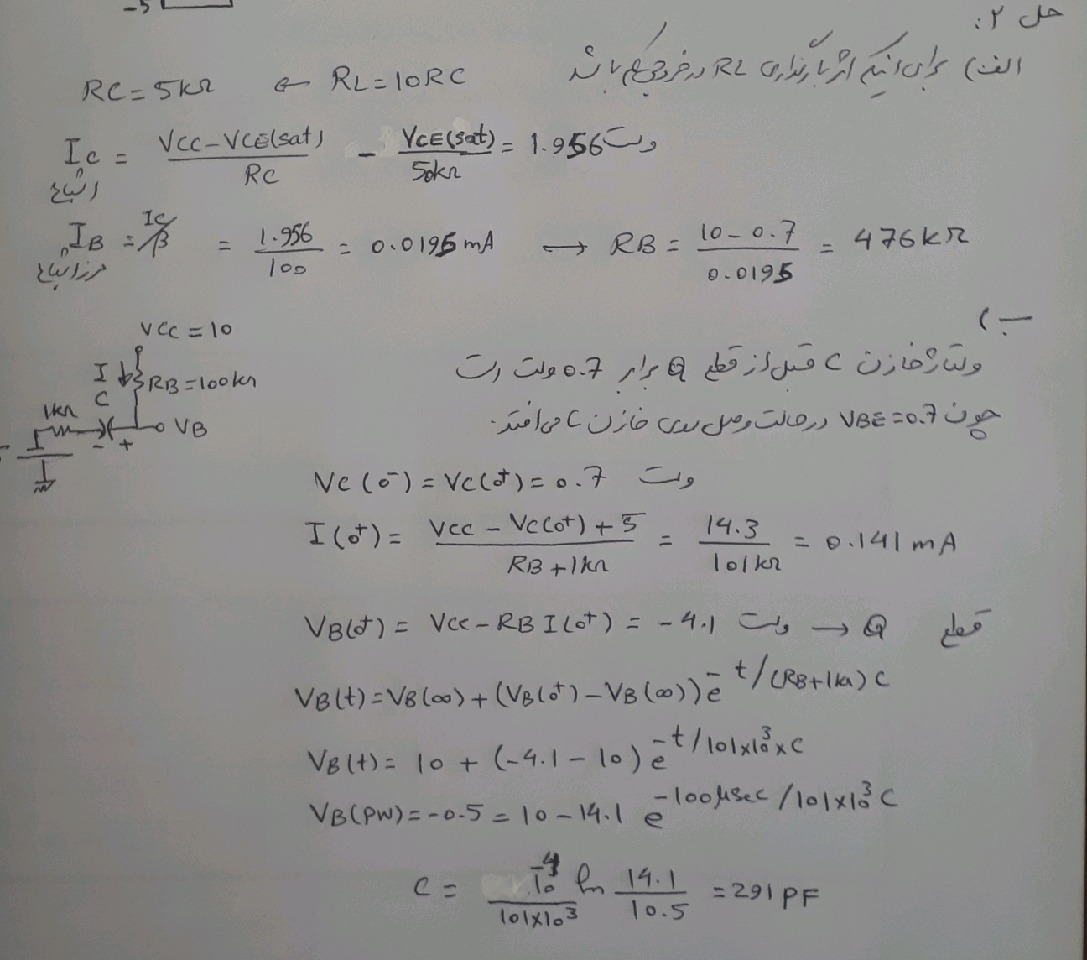 -5
حل ۲:
الف) برای اینکه اثر بارگذاری RL در خروجی کم باشد RL = 10RC ← RC = 5kΩ
IC اشباع = (VCC - VCE(sat)) / RC - VCE(sat) / 50kΩ = 1.956 ولت
IB مرز اشباع = IC/β = 1.956 / 100 = 0.0195 mA → RB = (10 - 0.7) / 0.0195 = 476kΩ
ب)
ولتاژ خازن C قبل از قطع Q برابر 0.7 ولت است
چون VBE = 0.7 در حالت وصل روی خازن C می افتد.
VCC = 10
I
RB = 100kΩ
C
1kΩ
- +
VB
VC(0⁻) = VC(0⁺) = 0.7 ولت
I(0⁺) = (VCC - VC(0⁺) + 5) / (RB + 1kΩ) = 14.3 / 101kΩ = 0.141 mA
VB(0⁺) = VCC - RB I(0⁺) = -4.1 ولت → Q قطع
VB(t) = VB(∞) + (VB(0⁺) - VB(∞)) e^-t/(RB+1kΩ)C
VB(t) = 10 + (-4.1 - 10) e^-t/101×10³×C
VB(PW) = -0.5 = 10 - 14.1 e^-100μsec/101×10³C
C = 10⁻⁴ / 101×10³ ln 14.1 / 10.5 = 291 PF